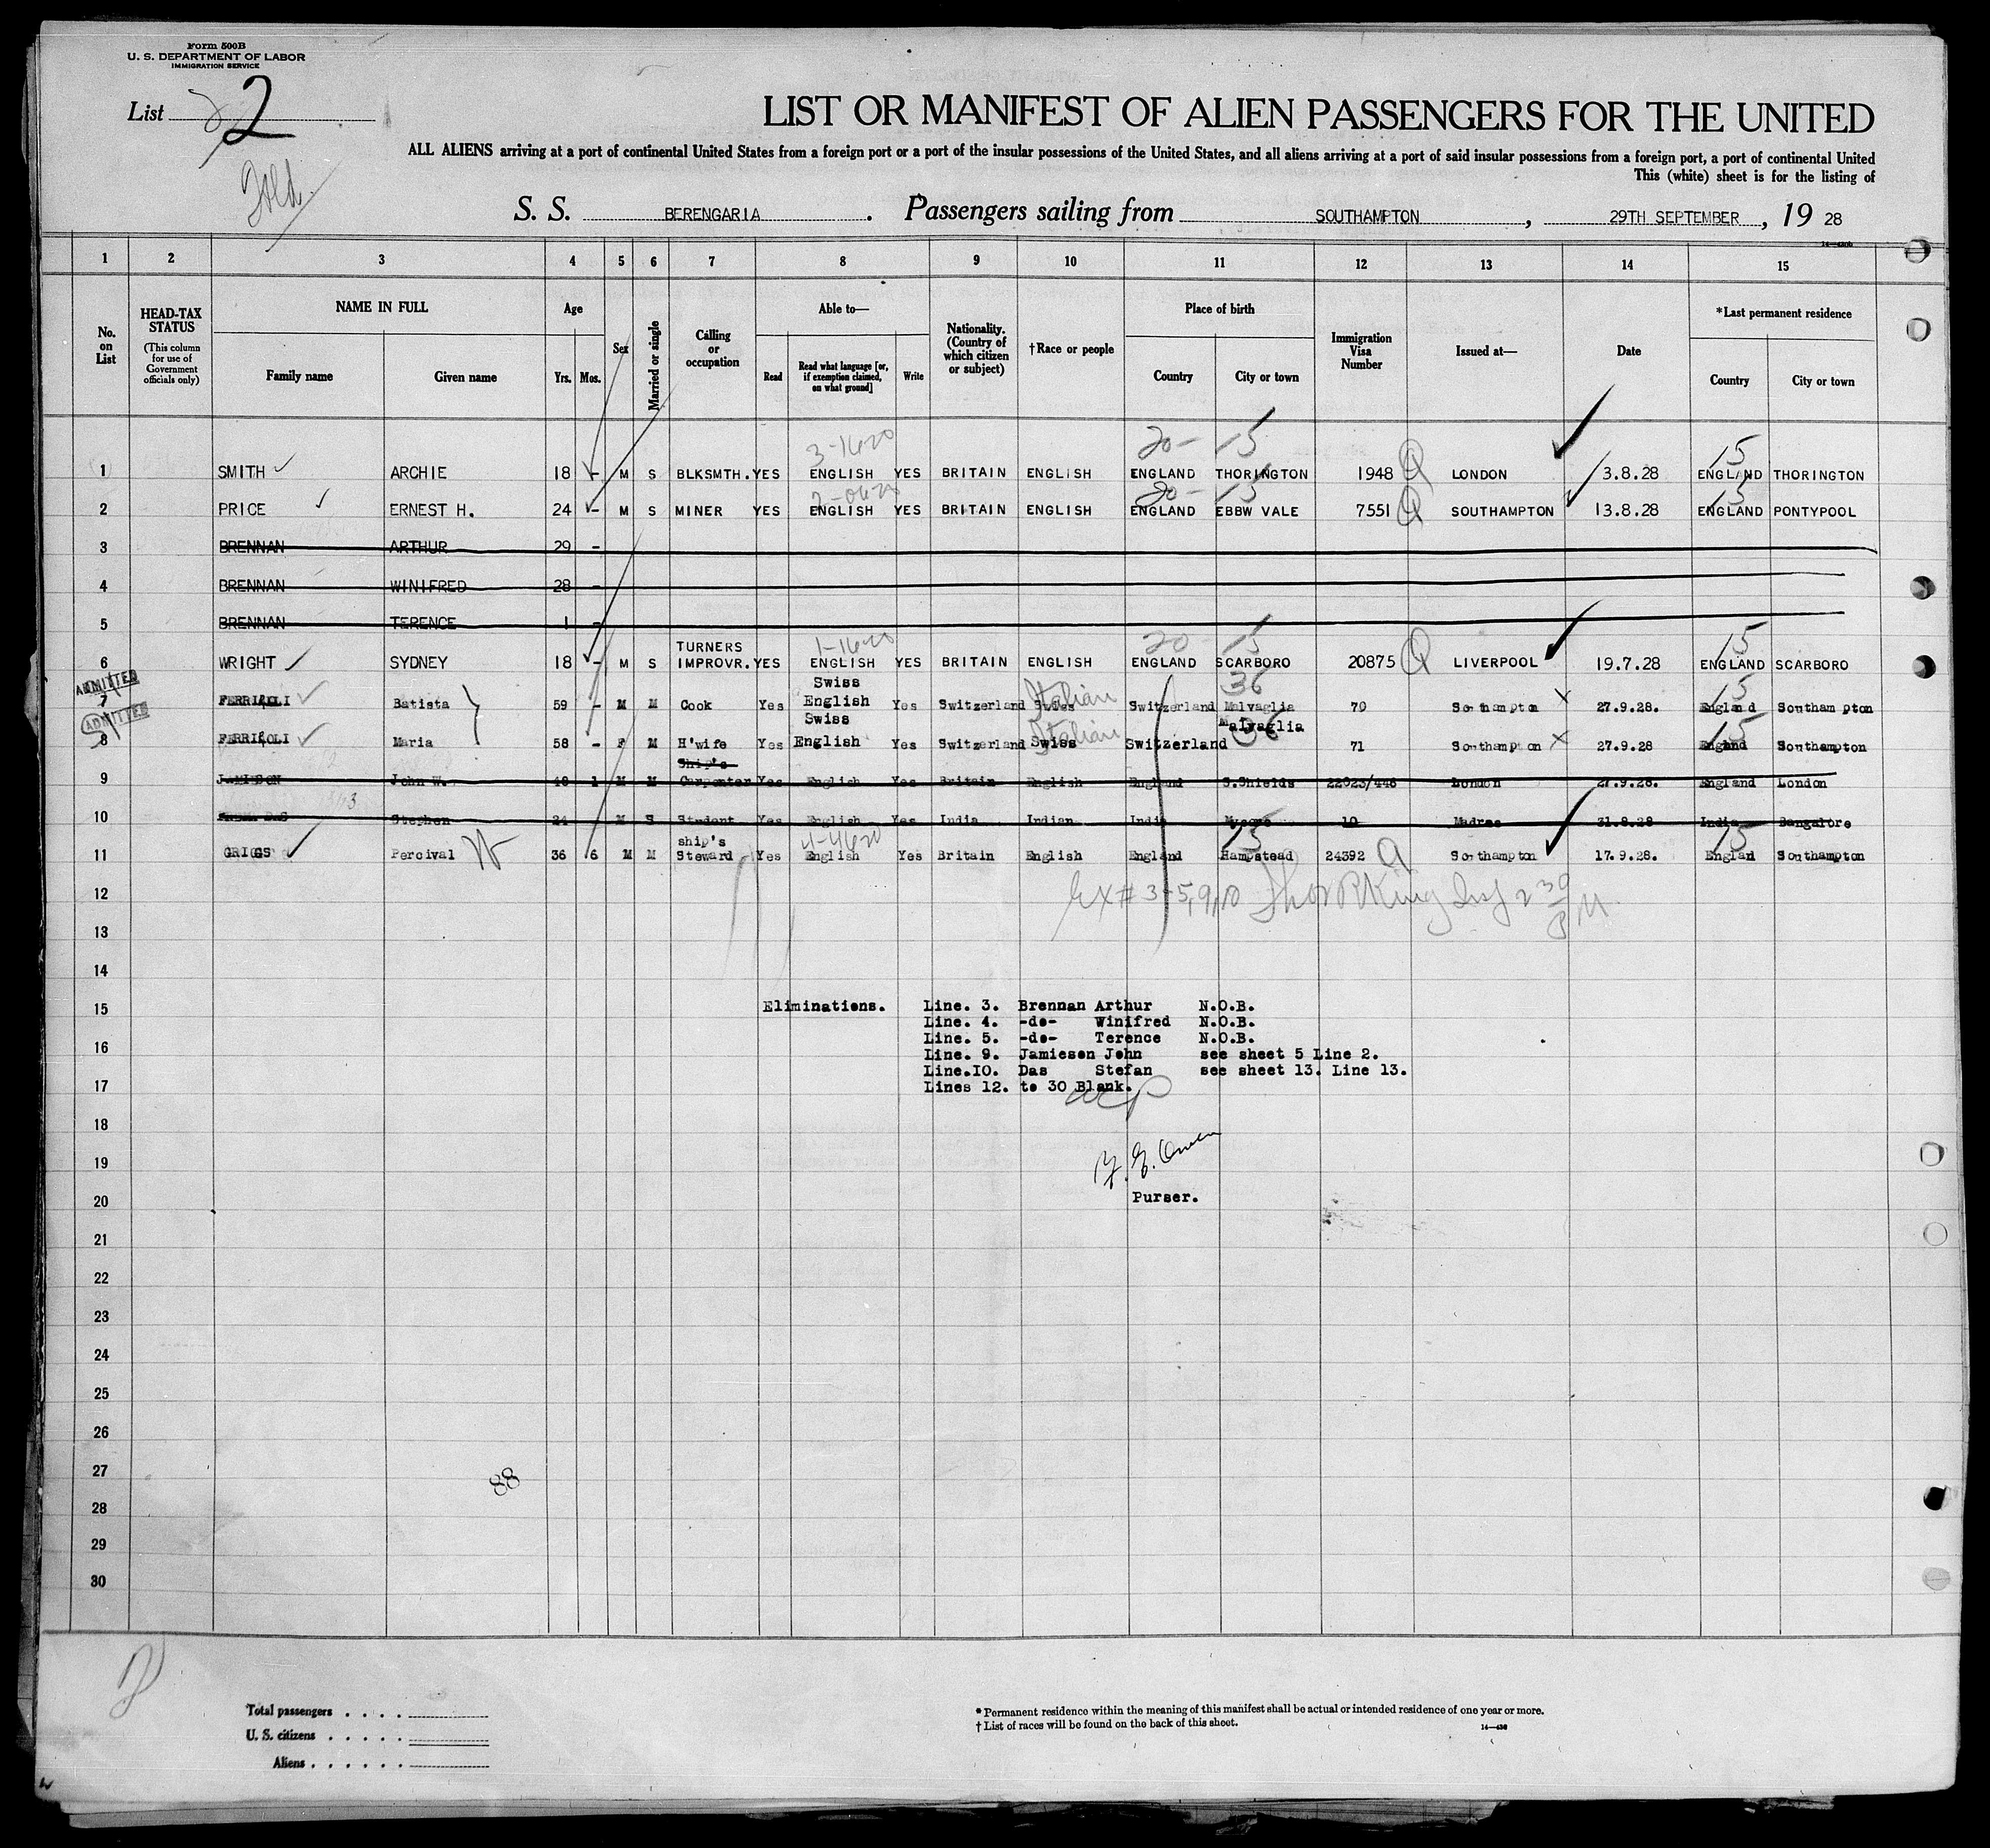 Form 500B
U. S. DEPARTMENT OF LABOR
IMMIGRATION SERVICE
List 2
LIST OR MANIFEST OF ALIEN PASSENGERS FOR THE UNITED
ALL ALIENS arriving at a port of continental United States from a foreign port or a port of the insular possessions of the United States, and all aliens arriving at a port of said insular possessions from a foreign port, a port of continental United
This (white) sheet is for the listing of
S. S. BERENGARIA. Passengers sailing from SOUTHAMPTON, 29TH SEPTEMBER, 19 28
1 2 3 4 5 6 7 8 9 10 11 12 13 14 15
No. on List
HEAD-TAX STATUS
(This column for use of Government officials only)
NAME IN FULL
Family name Given name
Age
Yrs. Mos.
Sex
Married or single
Calling or occupation
Able to—
Read Read what language [or, if exemption claimed, on what ground] Write
Nationality. (Country of which citizen or subject)
†Race or people
Place of birth
Country City or town
Immigration Visa Number
Issued at—
Date
*Last permanent residence
Country City or town
3-1620 20- 15 15
1 SMITH ARCHIE 18 - M S BLKSMTH. YES ENGLISH YES BRITAIN ENGLISH ENGLAND THORINGTON 1948 Q LONDON 3.8.28 ENGLAND THORINGTON
20- 15 15
2 PRICE ERNEST H. 24 - M S MINER YES ENGLISH YES BRITAIN ENGLISH ENGLAND EBBW VALE 7551 Q SOUTHAMPTON 13.8.28 ENGLAND PONTYPOOL
3 BRENNAN ARTHUR 29 -
4 BRENNAN WINIFRED 28 -
5 BRENNAN TERENCE 1 -
TURNERS 1-1620 20 15 15
6 WRIGHT SYDNEY 18 - M S IMPROVR. YES ENGLISH YES BRITAIN ENGLISH ENGLAND SCARBORO 20875 Q LIVERPOOL 19.7.28 ENGLAND SCARBORO
ADMITTED Swiss Italian 36 15
7 Batista 59 - M M Cook Yes English Yes Switzerland Swiss Switzerland Malvaglia 70 Southampton 27.9.28. England Southampton
ADMITTED Swiss Italian Malvaglia 36 15
8 Maria 58 - F M H'wife Yes English Yes Switzerland Swiss Switzerland 71 Southampton 27.9.28 England Southampton
Ship's
9 JAMIESON John W. 48 1 M M Carpenter Yes English Yes Britain English England S.Shields 22023/446 London 27.9.28. England London
10 Stephen 24 M S Student Yes English Yes India Indian India Mysore 10 Madras 31.8.28 India Bangalore
ship's 4-4620 15 15
11 GRIGGS Percival 36 6 M M Steward Yes English Yes Britain English England Hampstead 24392 Q Southampton 17.9.28. England Southampton
12 Ex # 3-5,9,10
13
14
15 Eliminations. Line. 3. Brennan Arthur N.O.B.
Line. 4. -do- Winifred N.O.B.
Line. 5. -do- Terence N.O.B.
16 Line. 9. Jamieson John see sheet 5 Line 2.
Line.IO. Das Stefan see sheet 13. Line 13.
17 Lines 12. to 30 Blank.
18
19
20 Purser.
21
22
23
24
25
26
27
88
28
29
30
Total passengers . . . .
U. S. citizens . . . . .
Aliens . . . . . .
* Permanent residence within the meaning of this manifest shall be actual or intended residence of one year or more.
† List of races will be found on the back of this sheet.